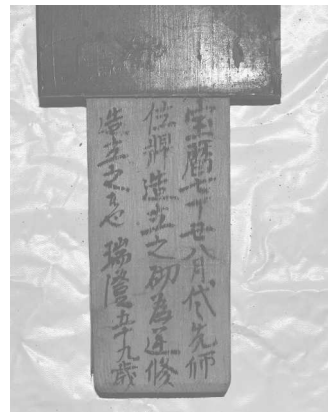 宝暦七丁丑八月代々先師
位牌造立之砌為逆修
造立之者也 瑞澄五十九歳